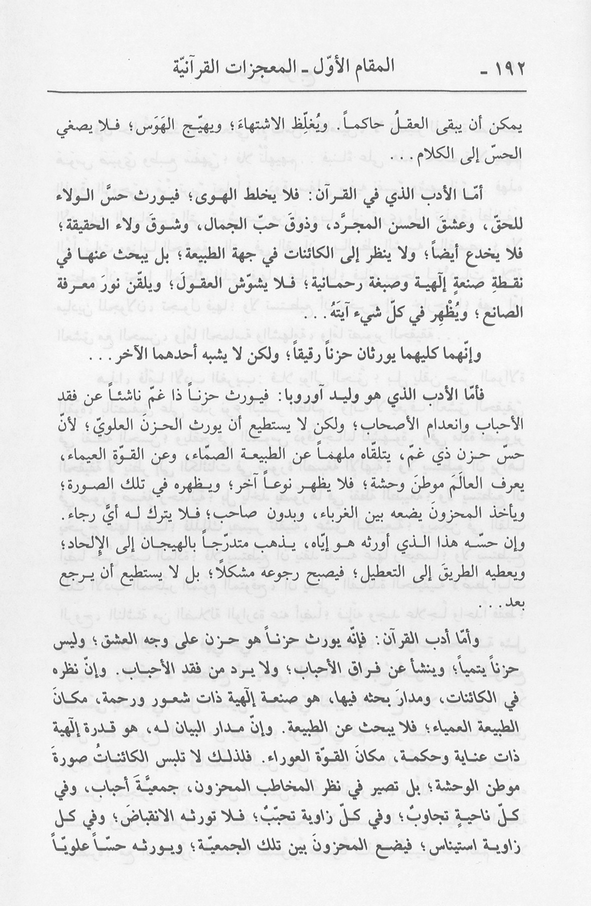 ١٩٢ - المقام الأوّل - المعجزات القرآنيّة
يمكن أن يبقى العقلُ حاكماً. ويُغلِّظ الاشتهاءَ؛ ويهيّج الهَوَس؛ فـلا يصغي
الحسّ إلى الكلام...
أمّـا الأدب الذي في القرآن: فلا يخلط الهوى؛ فيـورث حسَّ الـولاء
للحقّ، وعشقَ الحسن المجرَّد، وذوقَ حبّ الجمال، وشـوقَ ولاء الحقيقة؛
فلا يخدع أيضاً؛ ولا ينظر إلى الكائنات في جهة الطبيعة؛ بل يبحث عنها في
نقطةِ صنعةٍ إلٓهية وصبغة رحمانية؛ فـلا يشـوّش العقولَ؛ ويلقّن نورَ معـرفة
الصانع؛ ويُظْهِر في كلّ شيء آيَتَهُ...
وإنّهما كليهما يورثان حزناً رقيقاً؛ ولكن لا يشبه أحدهما الآخر...
فأمّا الأدب الذي هو وليـد أوروبا: فيـورث حزنـاً ذا غمّ ناشئـاً عن فقد
الأحباب وانعدام الأصحاب؛ ولكن لا يستطيع أن يورث الحـزنَ العلويّ؛ لأنّ
حسّ حـزن ذي غمّ، يتلقّـاه ملهمـاً عن الطبيعـة الصمّاء، وعن القـوّة العيماء،
يعرف العالَمَ موطنَ وحشة؛ فـلا يظهر نوعـاً آخر؛ ويـظهره في تلك الصورة؛
ويأخذ المحزونَ يضعه بين الغرباء، وبدون صاحب؛ فـلا يترك لـه أيَّ رجاء.
وإن حسّـه هذا الـذي أورثه هـو إيّاه، يـذهب متدرّجـاً بالهيجان إلى الإلحاد؛
ويعطيه الطريقَ إلى التعطيل؛ فيصبح رجوعه مشكلاً؛ بل لا يستطيع أن يـرجع
بعد...
وأمّا أدب القرآن: فإنّه يورث حزنـاً هو حـزن على وجه العشق؛ وليس
حزناً يتمياً؛ وينشأ عن فراق الأحباب؛ ولا يـرد من فقد الأحبـاب. وإنّ نظره
في الكائنات، ومدارَ بحثه فيها، هو صنعـة إلٓهية ذات شعـور ورحمة، مكـانَ
الطبيعة العمياء؛ فلا يبحث عن الطبيعة. وإنّ مـدار البيان لـه، هو قـدرة إلٓهية
ذات عنـاية وحكمـة، مكانَ القوّة العوراء. فلذلـك لا تلبس الكائنـاتُ صورةَ
موطن الوحشة؛ بـل تصير في نظر المخاطب المحزون، جمعيَّـةَ أحباب، وفي
كـلّ ناحيـةٍ تجاوبٌ؛ وفي كـلّ زاويـة تحبّبٌ؛ فـلا تورثـه الانقباضَ؛ وفي كـل
زاويـة استيناس؛ فيضع المحزونَ بين تلـك الجمعيّـة؛ ويـورثـه حسّـاً علويّـاً